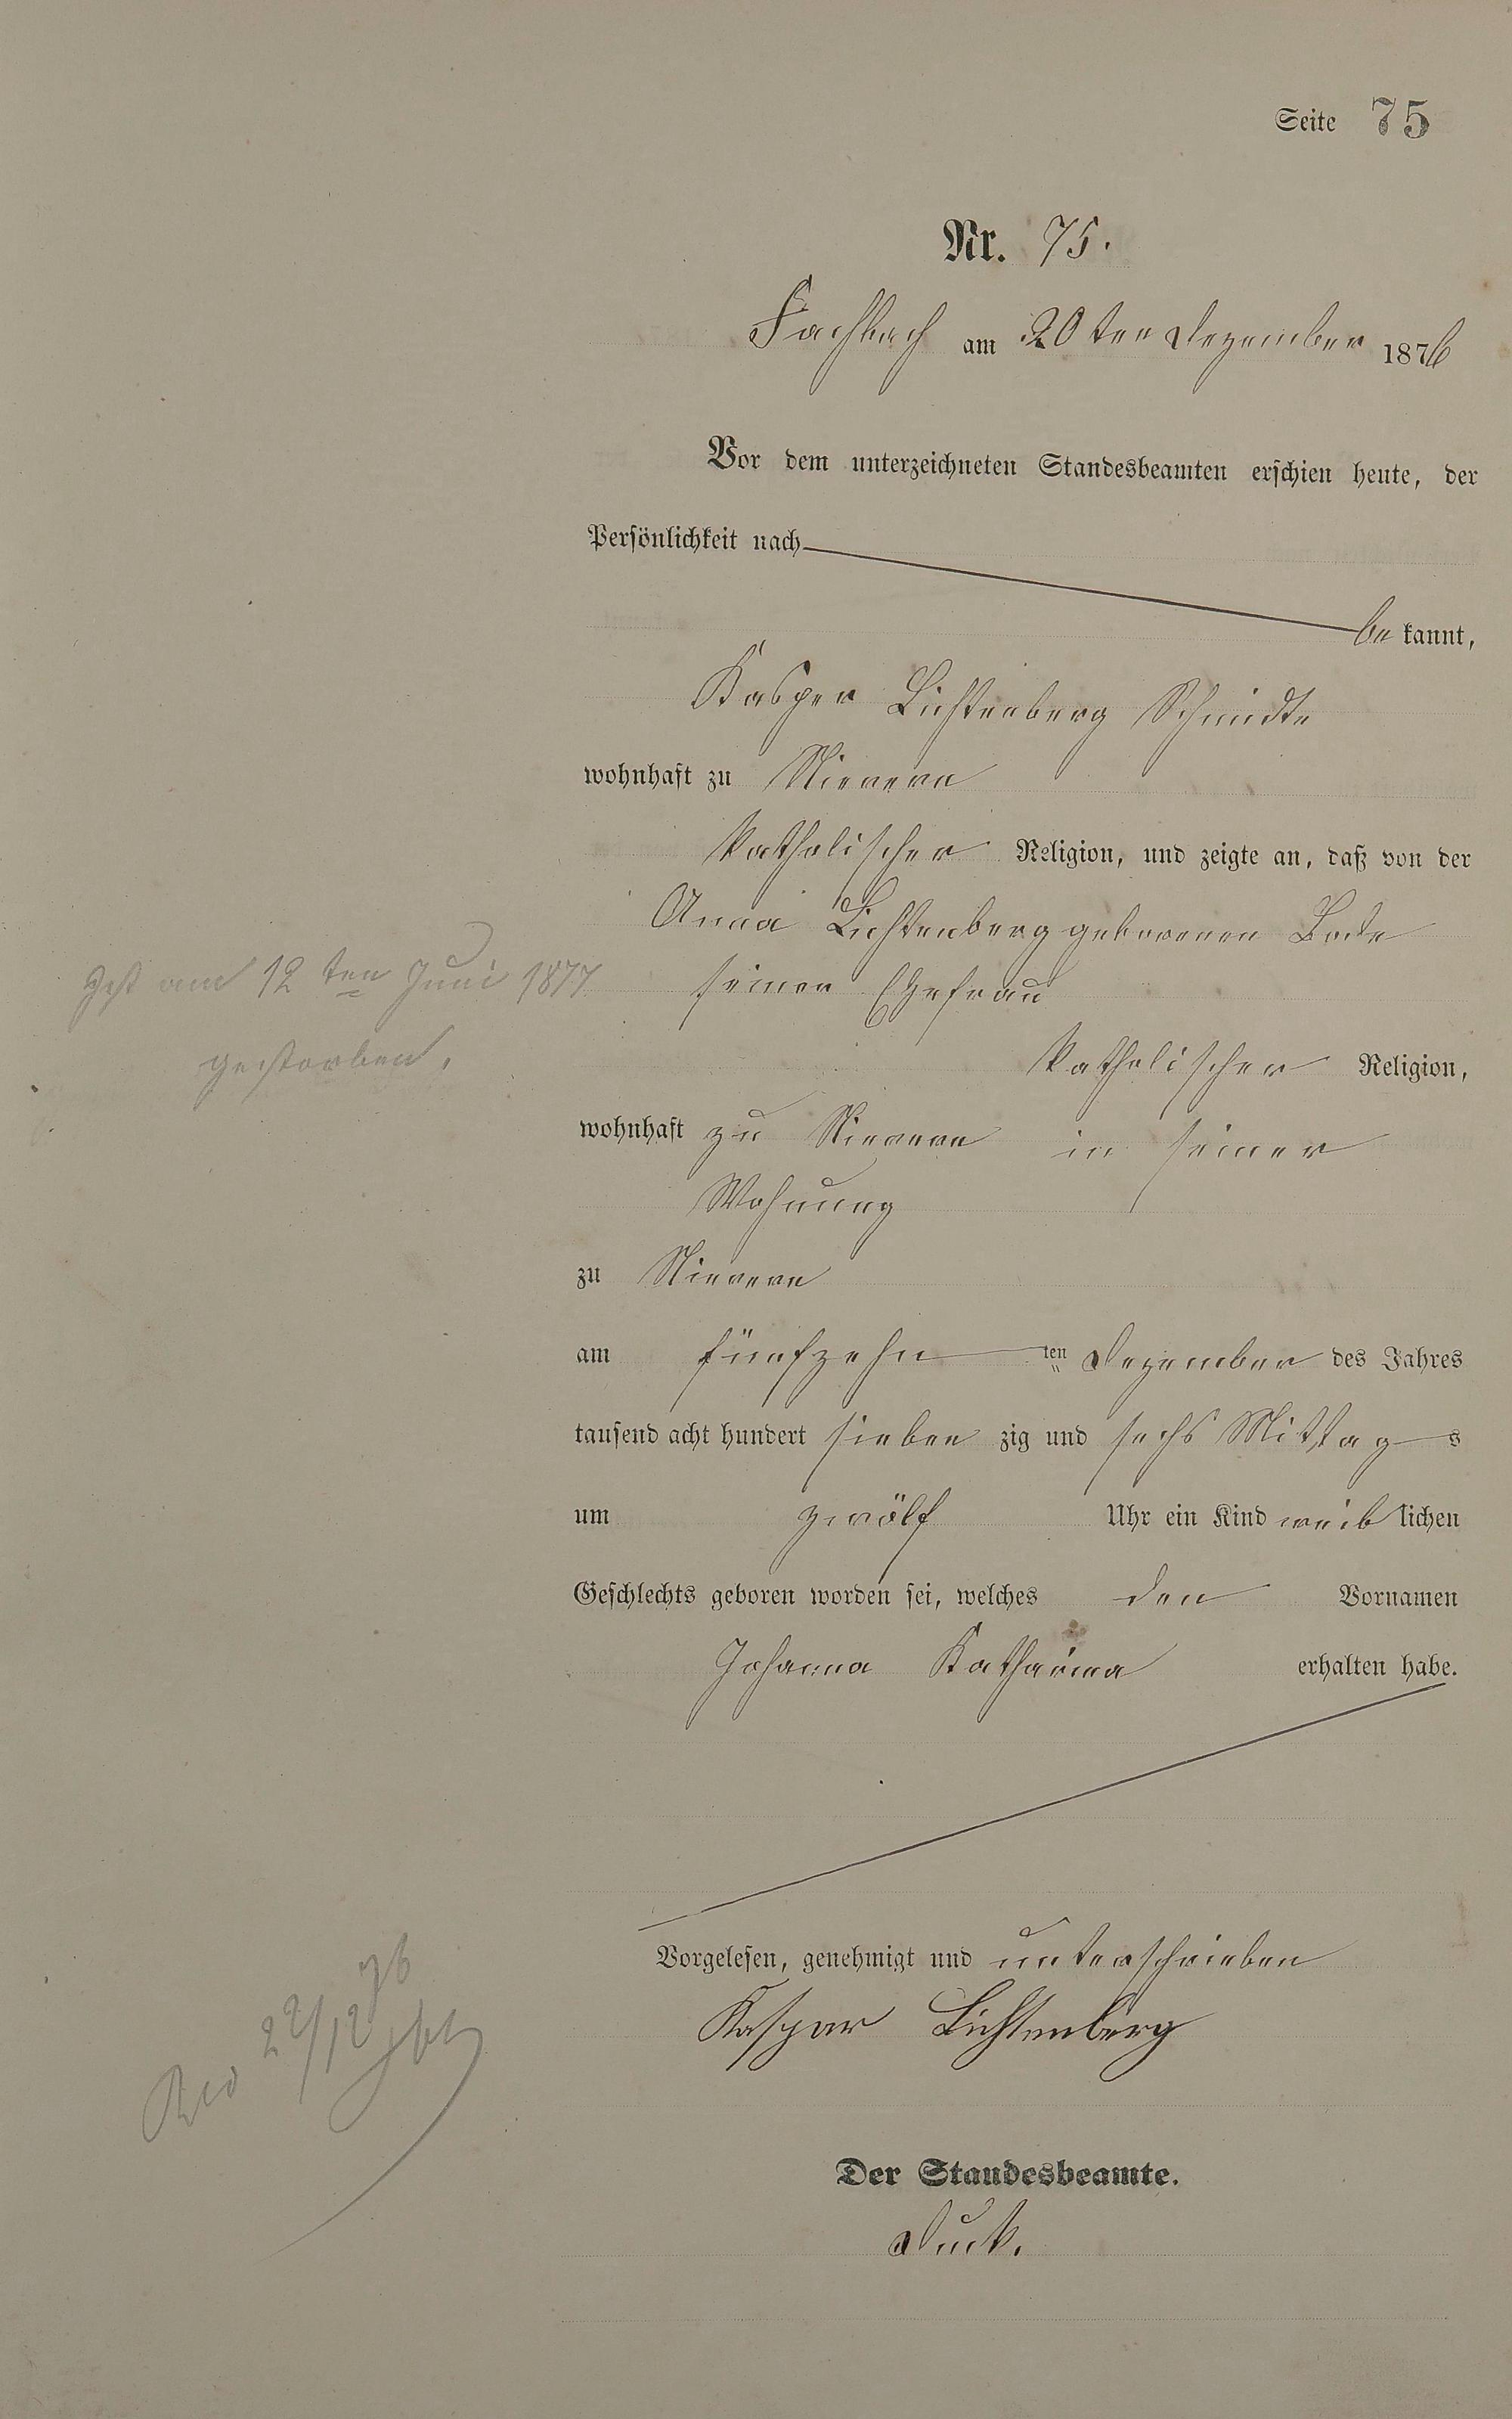 Seite 75
Nr. 75.
Fachbach am 20ten Dezember 1876
Vor dem unterzeichneten Standesbeamten erschien heute, der
Persönlichkeit nach
be kannt,
Kasper Lichtenberg Schmidte
wohnhaft zu Nievern
katholischer Religion, und zeigte an, daß von der
Anna Lichtenberg geborenen Bode
seiner Ehefrau
katholischer Religion,
wohnhaft zu Nievern in seiner
Wohnung
zu Nievern
am fünfzehn ten Dezember des Jahres
tausend acht hundert sieben zig und sechs Mittag s
um zwölf Uhr ein Kind weib lichen
Geschlechts geboren worden sei, welches den Vornamen
Johanna Katharina erhalten habe.
Vorgelesen, genehmigt und unterschrieben
Kaspar Lichtenberg
Der Standesbeamte.
Duck.
am 12ten Juni 1877
gestorben.
Rev 22/12 76